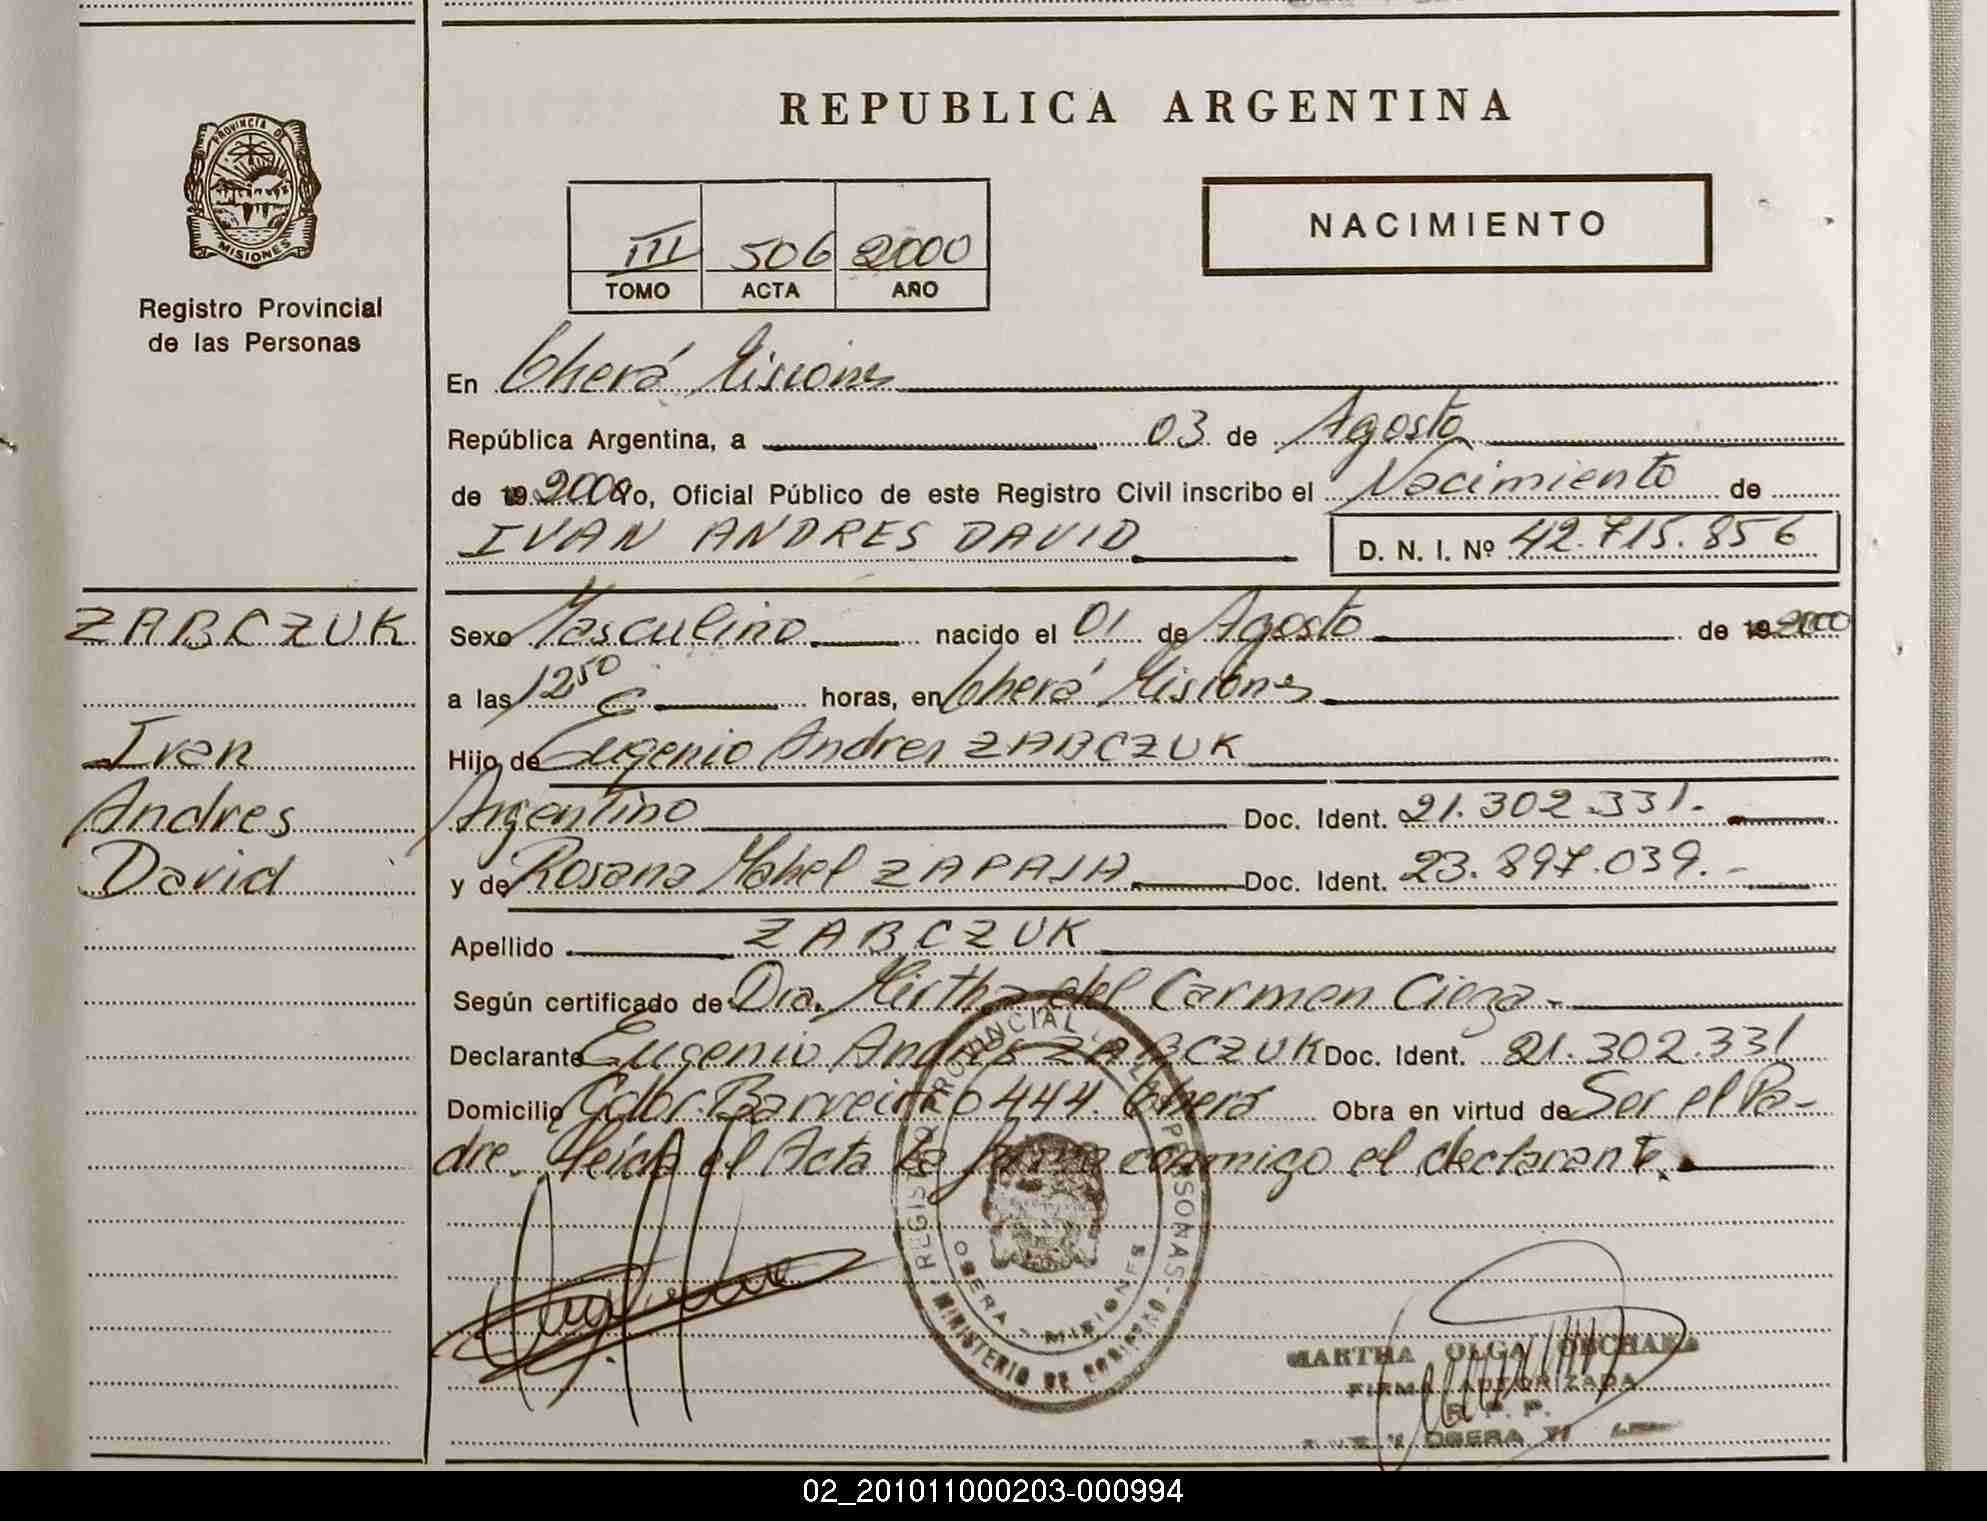 PROVINCIA DE
MISIONES
Registro Provincial
de las Personas
ZABCZUK
Ivan
Andres
David
REPUBLICA ARGENTINA
III 506 2000
TOMO ACTA AÑO
NACIMIENTO
En Oberá Misiones
República Argentina, a 03 de Agosto
de 19 2000 Yo, Oficial Público de este Registro Civil inscribo el Nacimiento de
IVAN ANDRES DAVID D. N. I. Nº 42.715.856
Sexo Masculino nacido el 01 de Agosto de 19 2000
a las 12 50 horas, en Oberá Misiones
Hijo de Eugenio Andres ZABCZUK
Argentino Doc. Ident. 21.302.331.
y de Rosana Mabel ZAPAJA Doc. Ident. 23.897.039.-
Apellido ZABCZUK
Según certificado de Dra. Mirtha del Carmen Cieza.
Declarante Eugenio Andres ZABCZUK Doc. Ident. 21.302.331
Domicilio Gdor. Barreiro 444. Oberá Obra en virtud de Ser el Pa-
dre. Leída el Acta la firma conmigo el declarante.
REGISTRO PROVINCIAL DE LAS PERSONAS
OBERA - MISIONES
MINISTERIO DE GOBIERNO
MARTHA OLGA
FIRMA AUTORIZADA
R. P. P.
OBERA
02_201011000203-000994